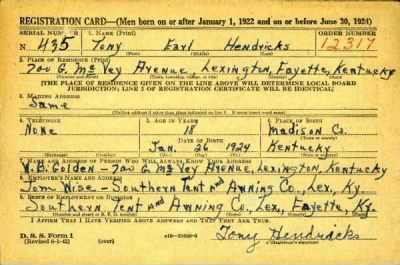 REGISTRATION CARD—(Men born on or after January 1, 1922 and on or before June 30, 1924)
SERIAL NUMBER 1. NAME (Print) ORDER NUMBER
N 435 Tony Earl Hendricks 12317
(First) (Middle) (Last)
2. PLACE OF RESIDENCE (Print)
700 G. McVey Avenue, Lexington, Fayette, Kentucky
(Number and street) (Town, township, village, or city) (County) (State)
[THE PLACE OF RESIDENCE GIVEN ON THE LINE ABOVE WILL DETERMINE LOCAL BOARD
JURISDICTION; LINE 2 OF REGISTRATION CERTIFICATE WILL BE IDENTICAL]
3. MAILING ADDRESS
Same
[Mailing address if other than place indicated on line 2. If same insert word same]
4. TELEPHONE 5. AGE IN YEARS 6. PLACE OF BIRTH
None 18 Madison Co.
DATE OF BIRTH
Jan. 26 1924 Kentucky
(Mo.) (Day) (Yr.) (State or country)
7. NAME AND ADDRESS OF PERSON WHO WILL ALWAYS KNOW YOUR ADDRESS
W.B. Golden - 700 G. McVey Avenue, Lexington, Kentucky
8. EMPLOYER'S NAME AND ADDRESS
Tom Wise - Southern Tent and Awning Co., Lex, Ky
9. PLACE OF EMPLOYMENT OR BUSINESS
Southern Tent and Awning Co., Lex, Fayette, Ky.
(Number and street or R. F. D. number) (Town) (County) (State)
I AFFIRM THAT I HAVE VERIFIED ABOVE ANSWERS AND THAT THEY ARE TRUE.
D. S. S. Form 1
(Revised 6-1-42) Tony Hendricks
(Registrant's signature)